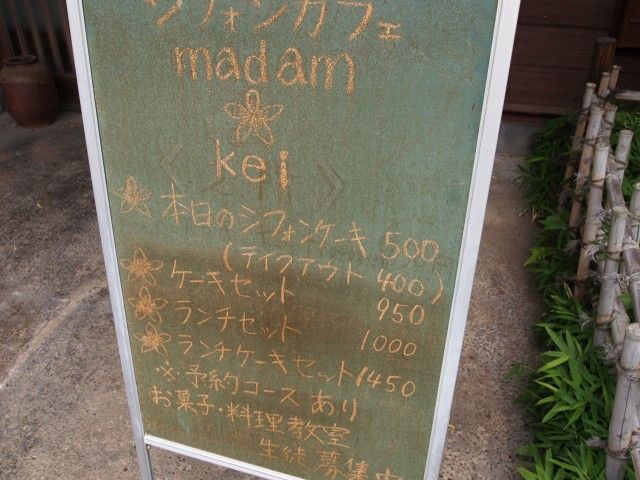 シフォンカフェ
madam
kei
本日のシフォンケーキ 500
(テイクアウト 400)
ケーキセット 950
ランチセット 1000
ランチケーキセット 1450
※予約コースあり
お菓子・料理教室
生徒募集中